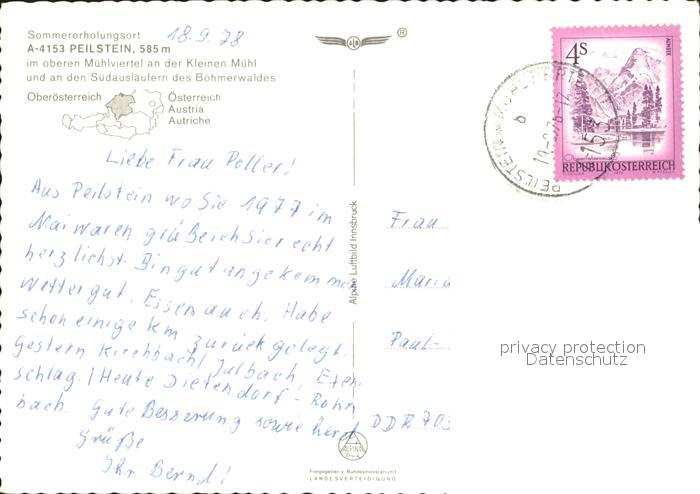 Sommererholungsort
18.9.78
A-4153 PEILSTEIN, 585 m
im oberen Mühlviertel an der Kleinen Mühl
und an den Südausläufern des Böhmerwaldes
Oberösterreich
Österreich
Austria
Autriche
Liebe Frau Peller!
Aus Peilstein wo Sie 1977 im
Mai waren grüße ich Sie recht
herzlichst. Bin gut angekommen
Wetter gut. Essen auch. Habe
schon einige Km zurückgelegt.
Gestern Kirchbach/Julbach, Etzen
schlag. ! Heute Dietendorf - Rohr
bach. Gute Besserung sowie herzl
Grüße
Ihr Bernd!
Alpine Luftbild Innsbruck
®
4S
ALMSEE
REPUBLIK ÖSTERREICH
PEILSTEIN
Frau
Maria
Paul-
DDR 703
privacy protection
Datenschutz
ALPINE
Freigegeben v. Bundesministerium f.
LANDESVERTEIDIGUNG